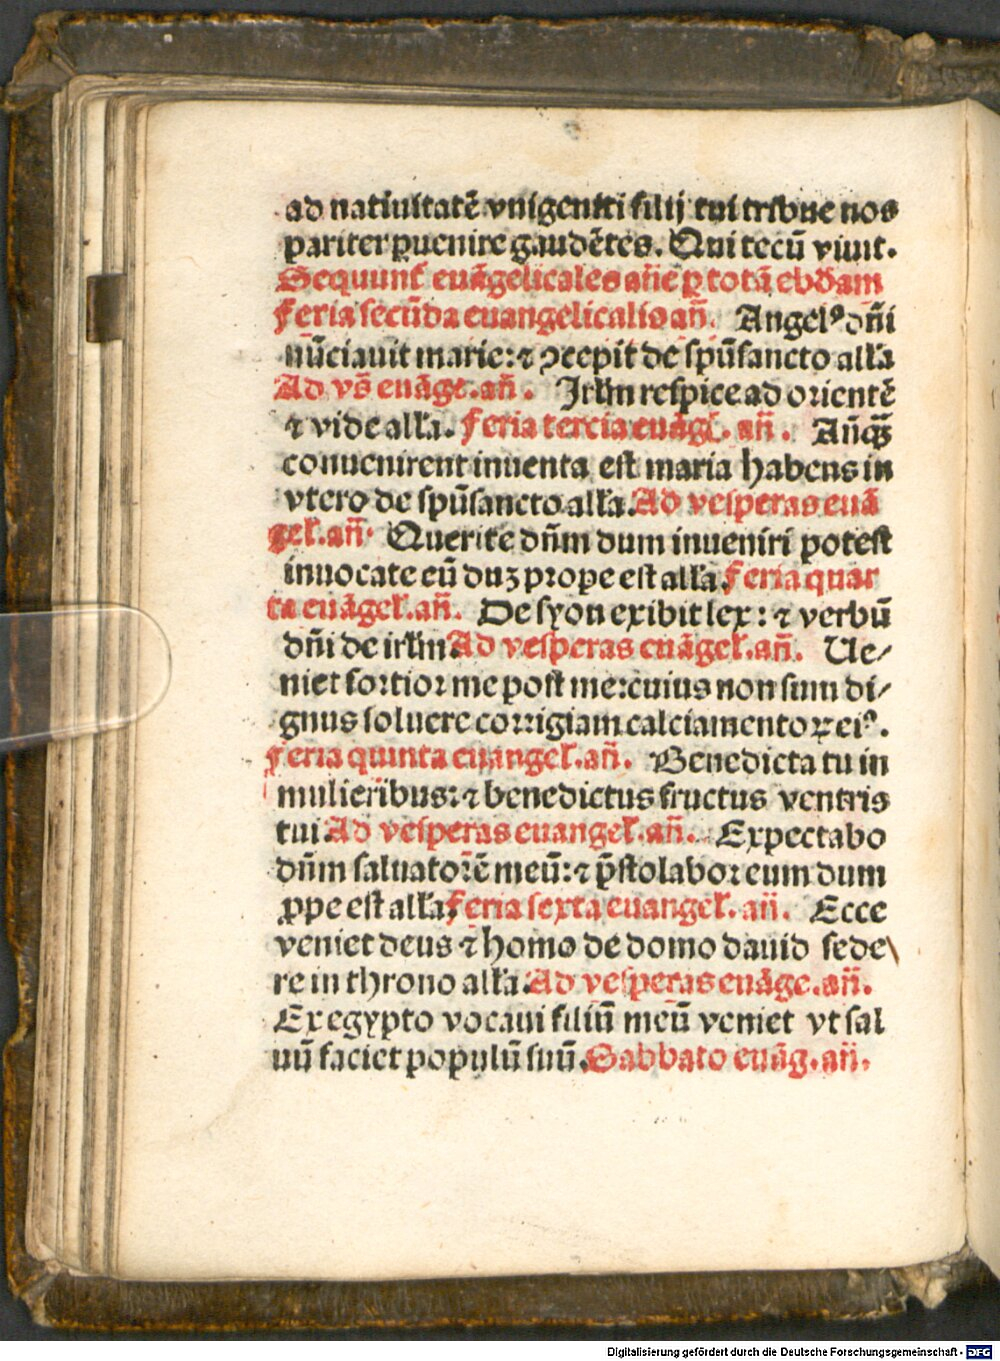 ad natiuitatē vnigeniti filij tui tribue nos
pariter ꝑuenire gaudētes. Qui tecū viuit.
Sequunt᷑ euāgelicales añe ꝑ totā ebđam
Feria secūda euangelicalis añ. Angelꝰ dñi
nūciauit marie: ⁊ ꝯcepit de spūsancto alła
Ad vs̄ euāge. añ. Jrłm respice ad orientē
⁊ vide alła. Feria tercia euāgł. añ. Añqꝫ
conuenirent inuenta est maria habens in
vtero de spūsancto alła. Ad vesperas euā
geł. añ. Querite dñm dum inueniri potest
inuocate eū duꝫ prope est alła. Feria quar
ta euāgeł. añ. De syon exibit lex: ⁊ verbū
dñi de irłm Ad vesperas euāgeł. añ. Ue⸗
niet fortior me post me: cuius non sum di⸗
gnus soluere corrigiam calciamentoꝝ eiꝰ.
Feria quinta euangeł. añ. Benedicta tu in
mulieribus: ⁊ benedictus fructus ventris
tui. Ad vesperas euangeł. añ. Expectabo
dñm saluatorē meū: ⁊ p̄stolabor eum dum
ꝓpe est alła. Feria sexta euangeł. añ. Ecce
veniet deus ⁊ homo de domo dauid sede\
re in throno alła. Ad vesperas euāge. añ.
Ex egypto vocaui filiū meū veniet vt sal
uū faciet populū suū. Sabbato euāg. añ.
Digitalisierung gefördert durch die Deutsche Forschungsgemeinschaft - DFG